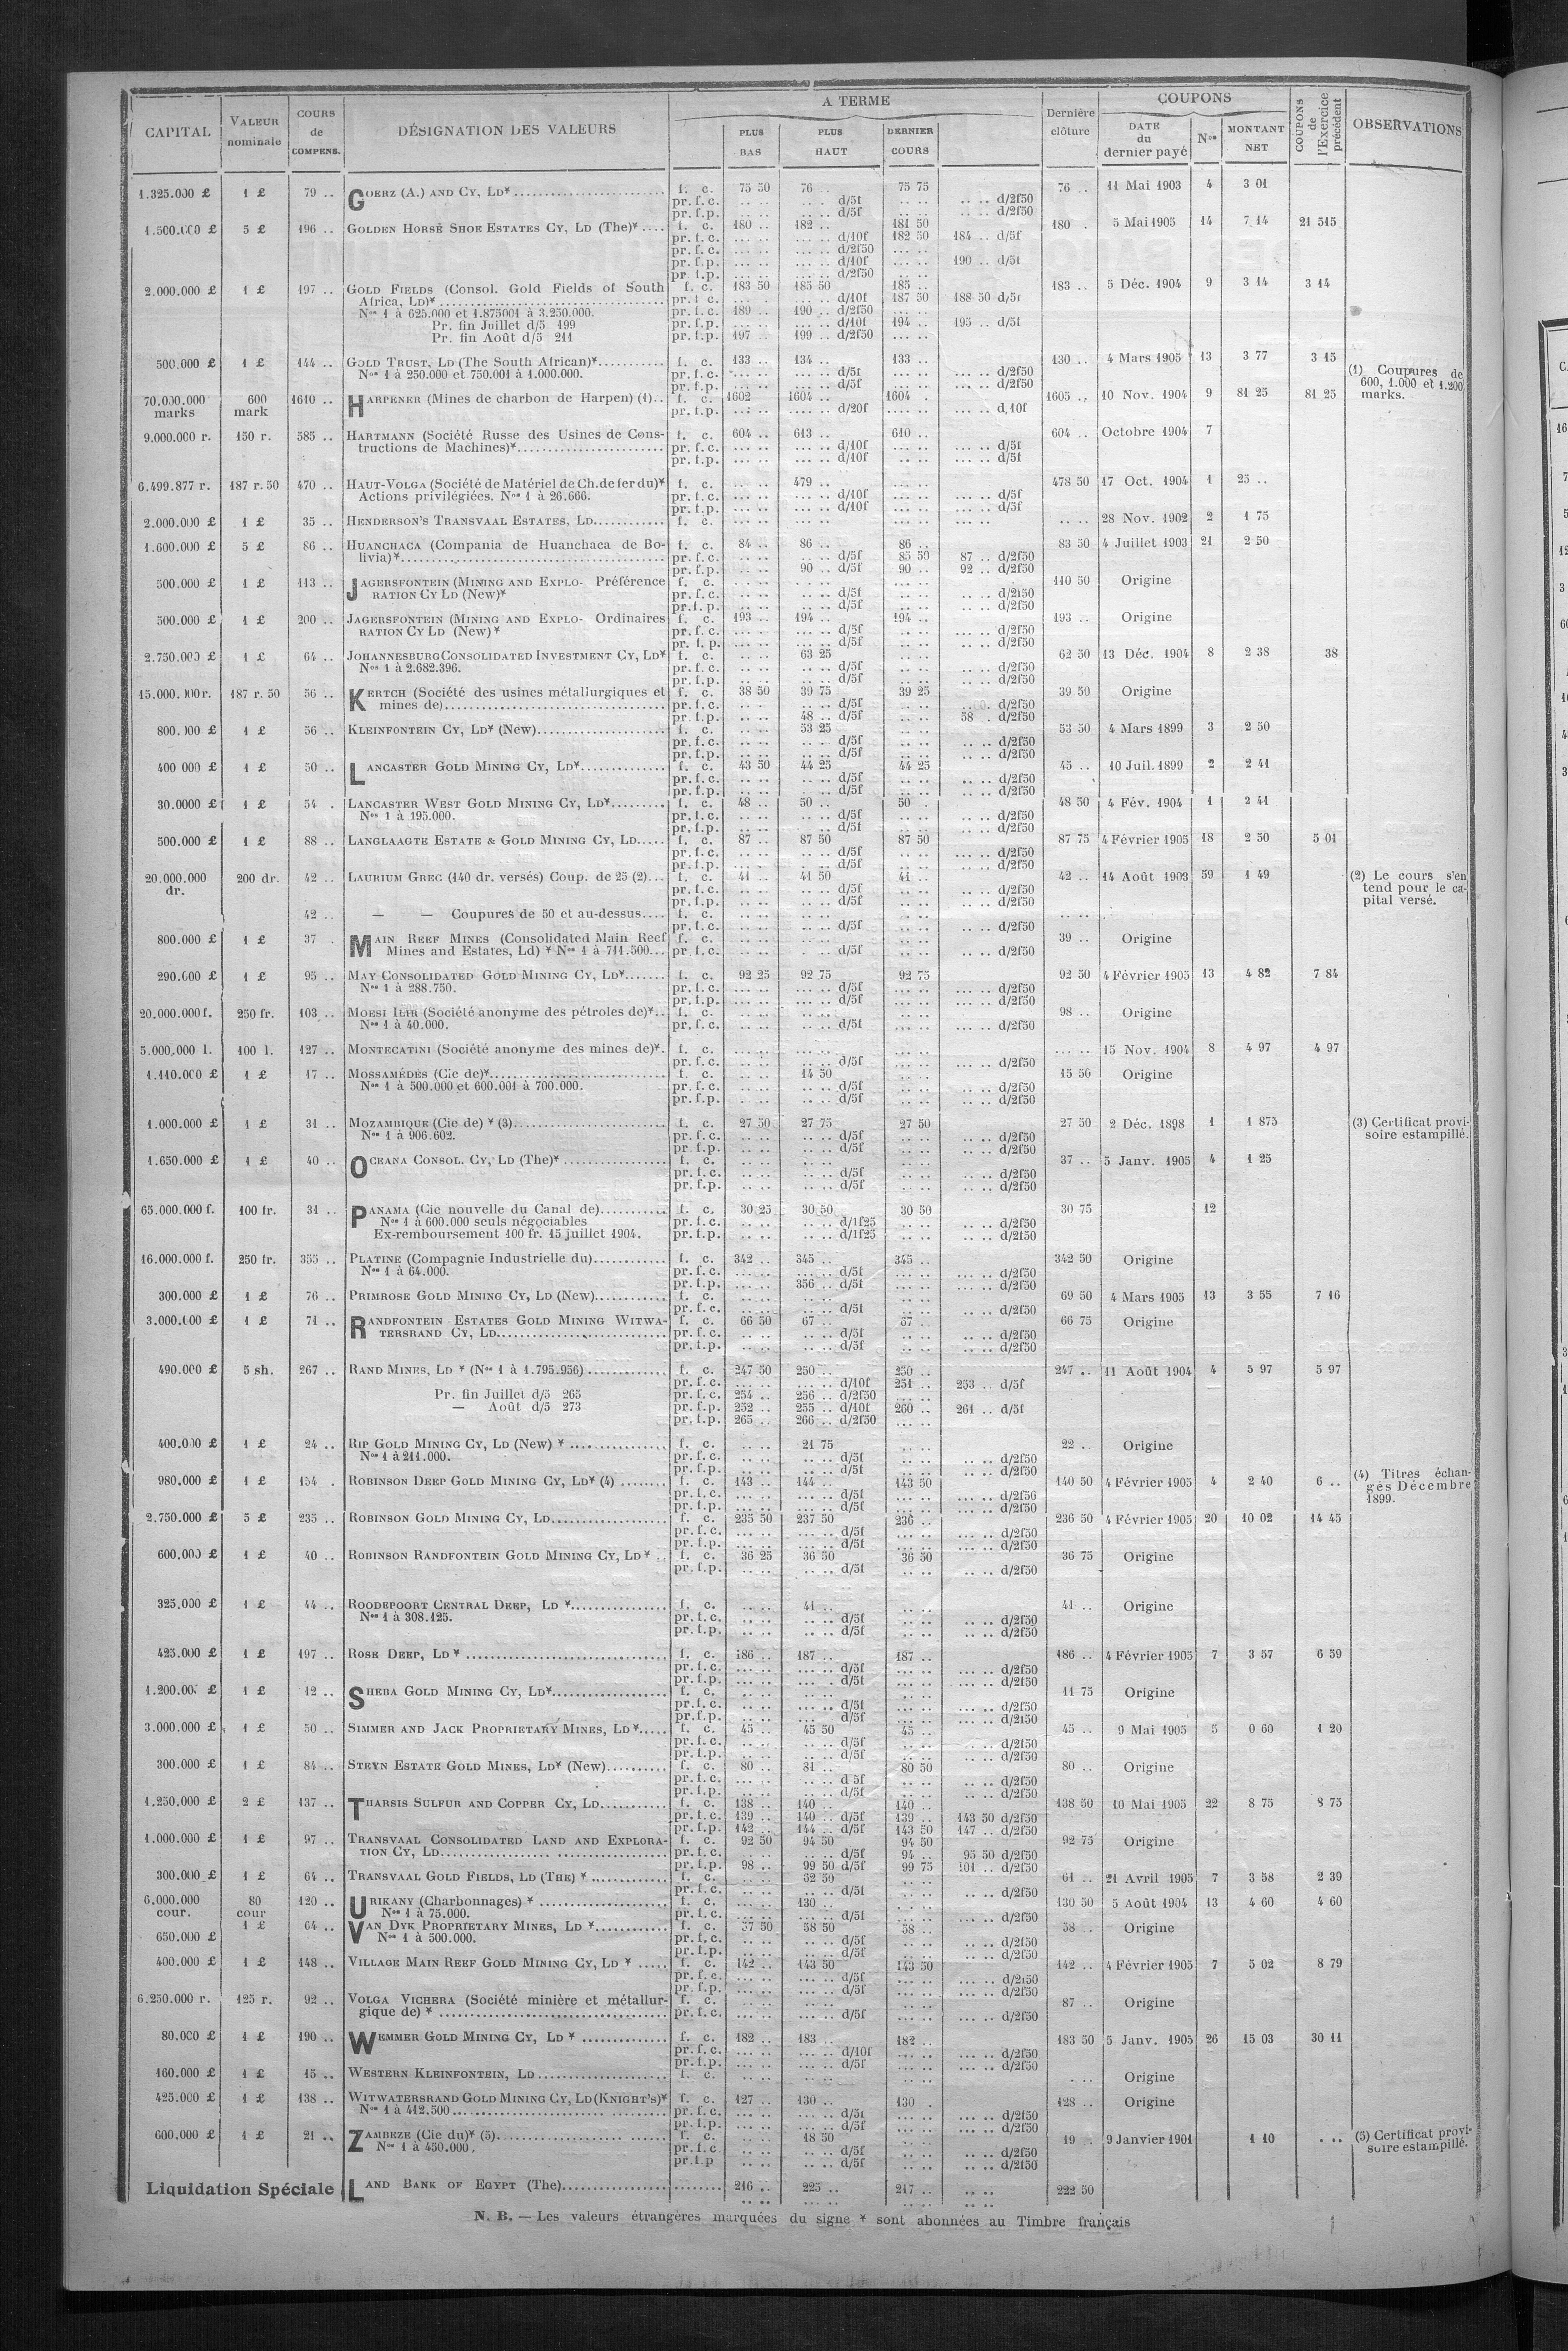 CAPITAL | VALEUR nominale | COURS de COMPENS. | DÉSIGNATION DES VALEURS | A TERME | PLUS BAS | PLUS HAUT | DERNIER COURS | Dernière clôture | COUPONS | DATE du dernier payé | Nos | MONTANT NET | COUPONS de l'Exercice précédent | OBSERVATIONS
1.325.000 £ 1 £ 79 .. GOERZ (A.) AND CY, LD* f. c. 75 50 76 .. 75 75 76 .. 11 Mai 1903 4 3 01
pr. f. c. .. .. .. . d/5f .. .. .. .. d/2f50
pr. f.p. .. .. .. .. d/5f .. .. .. .. d/2f50
1.500.000 £ 5 £ 196 .. GOLDEN HORSE SHOE ESTATES CY, LD (The)* f. c. 180 .. 182 .. 181 50 180 . 5 Mai 1905 14 7 14 21 515
pr. f. c. ... .. ... .. d/10f 182 50 184 .. d/5f
pr. f. c. ... .. ... .. d/2f50 ... ..
pr. f.p. ... .. ... .. d/10f ... .. 190 .. d/5f
pr. f.p. ... .. ... .. d/2f50 ... ..
2.000.000 £ 1 £ 197 .. GOLD FIELDS (Consol. Gold Fields of South f. c. 183 50 185 50 185 .. 183 .. 5 Déc. 1904 9 3 14 3 14
Africa, LD)* pr. f. c. ... . ... .. d/10f 187 50 188 50 d/5f
Nos 1 à 625.000 et 1.875001 à 3.250.000. pr. f. c. 189 .. 190 .. d/2f50 ... ..
Pr. fin Juillet d/5 199 pr. f.p. ... .. ... .. d/10f 194 .. 195 .. d/5f
Pr. fin Août d/5 211 pr. f.p. 197 .. 199 .. d/2f50 ... ..
500.000 £ 1 £ 144 .. GOLD TRUST, LD (The South African)* f. c. 133 .. 134 .. 133 .. 130 .. 4 Mars 1905 13 3 77 3 15
Nos 1 à 250.000 et 750.001 à 1.000.000. pr. f. c. ... .. ... .. d/5f ... .. ... .. d/2f50 (1) Coupures de
pr. f.p. ... .. ... .. d/5f ... .. ... .. d/2f50 600, 1.000 et 1.200
70.000.000 marks 600 mark 1610 .. HARPENER (Mines de charbon de Harpen) (1) f. c. 1602 1604 .. 1604 . 1605 .. 10 Nov. 1904 9 81 25 81 25 marks.
pr. f.p. ... .. .... .. d/20f .... .. .... .. d,10f
9.000.000 r. 150 r. 585 .. HARTMANN (Société Russe des Usines de Cons- f. c. 604 .. 613 .. 610 .. 604 .. Octobre 1904 7
tructions de Machines)* pr. f. c. ... .. ... .. d/10f .. .. ... .. d/5f
pr. f.p. ... .. ... .. d/10f .. .. ... .. d/5f
6.499.877 r. 187 r. 50 470 .. HAUT-VOLGA (Société de Matériel de Ch. de fer du)* f. c. ... .. 479 .. ... .. 478 50 17 Oct. 1904 1 25 ..
Actions privilégiées. Nos 1 à 26.666. pr. f. c. ... .. ... .. d/10f ... .. ... .. d/5f
pr. f.p. ... .. ... .. d/10f ... .. ... .. d/5f
2.000.000 £ 1 £ 35 .. HENDERSON'S TRANSVAAL ESTATES, LD f. c. ... .. ... .. ... .. ... .. .. .. 28 Nov. 1902 2 1 75
1.600.000 £ 5 £ 86 .. HUANCHACA (Compania de Huanchaca de Bo- f. c. 84 .. 86 .. 86 .. 83 50 4 Juillet 1903 21 2 50
livia)* pr. f. c. .. .. .. .. d/5f 85 50 87 .. d/2f50
pr. f.p. .. .. 90 .. d/5f 90 .. 92 .. d/2f50
500.000 £ 1 £ 113 .. JAGERSFONTEIN (MINING AND EXPLO- Préférence f. c. ... .. ... .. ... .. 110 50 Origine
RATION CY LD (New)* pr. f. c. .. .. .. .. d/5f .. .. .. .. d/2f50
pr. f. p. .. .. .. .. d/5f .. .. .. .. d/2f50
500.000 £ 1 £ 200 .. JAGERSFONTEIN (MINING AND EXPLO- Ordinaires f. c. 193 .. 194 .. 194 .. 193 .. Origine
RATION CY LD (New)* pr. f. c. ... .. ... .. d/5f .. .. ... .. d/2f50
pr. f. p. ... .. ... .. d/5f .. .. ... .. d/2f50
2.750.000 £ 1 £ 64 .. JOHANNESBURG CONSOLIDATED INVESTMENT CY, LD* f. c. .. .. 63 25 .. .. 62 50 13 Déc. 1904 8 2 38 38
Nos 1 à 2.682.396. pr. f. c. .. .. .. .. d/5f .. .. .. .. d/2f50
pr. f.p. .. .. .. .. d/5f .. .. .. .. d/2f50
15.000.000 r. 187 r. 50 56 .. KERTCH (Société des usines métallurgiques et f. c. 38 50 39 75 39 25 39 50 Origine
mines de) pr. f. c. .. . .. .. d/5f .. .. .. .. d/2f50
pr. f.p. .. .. 48 .. d/5f .. .. 58 . d/2f50
800.000 £ 1 £ 56 .. KLEINFONTEIN CY, LD* (New) f. c. .. .. 53 25 .. .. 53 50 4 Mars 1899 3 2 50
pr. f. c. .. .. .. . d/5f .. .. .. .. d/2f50
pr. f.p. .. .. .. .. d/5f .. .. .. .. d/2f50
400 000 £ 1 £ 50 .. LANCASTER GOLD MINING CY, LD* f. c. 43 50 44 25 44 25 45 .. 10 Juil. 1899 2 2 41
pr. f. c. .. .. .. .. d/5f .. .. .. .. d/2f50
pr. f.p. .. .. .. .. d/5f .. .. .. .. d/2f50
30.0000 £ 1 £ 54 . LANCASTER WEST GOLD MINING CY, LD* f. c. 48 .. 50 .. 50 . 48 50 4 Fév. 1904 1 2 41
Nos 1 à 195.000. pr. f. c. .. .. .. .. d/5f .. .. .. .. d/2f50
pr. f.p. .. .. .. .. d/5f .. .. .. .. d/2f50
500.000 £ 1 £ 88 .. LANGLAAGTE ESTATE & GOLD MINING CY, LD f. c. 87 .. 87 50 87 50 87 75 4 Février 1905 18 2 50 5 01
pr. f. c. .. .. .. .. d/5f .. .. ... .. d/2f50
pr. f.p. .. .. .. .. d/5f .. .. .. .. d/2f50
20.000.000 dr. 200 dr. 42 .. LAURIUM GREC (140 dr. versés) Coup. de 25 (2) f. c. 41 .. 41 50 41 .. 42 .. 14 Août 1903 59 1 49 (2) Le cours s'en
pr. f. c. .. .. .. .. d/5f .. .. .. .. d/2f50 tend pour le ca-
pr. f.p. .. .. .. .. d/5f .. .. .. .. d/2f50 pital versé.
42 .. — — Coupures de 50 et au-dessus f. c. .. .. .. .. .. .. .. ..
pr. f. c. .. .. .. .. d/5f .. .. .. .. d/2f50
800.000 £ 1 £ 37 . MAIN REEF MINES (Consolidated Main Reef f. c. .. .. .. .. .. .. 39 .. Origine
Mines and Estates, Ld) * Nos 1 à 711.500 pr. f. c. .. .. .. .. d/5f .. .. .. .. d/2f50
290.000 £ 1 £ 95 .. MAY CONSOLIDATED GOLD MINING CY, LD* f. c. 92 25 92 75 92 75 92 50 4 Février 1905 13 4 82 7 84
Nos 1 à 288.750. pr. f. c. .. .. .. .. d/5f .. .. ... .. d/2f50
pr. f.p. .. .. .. .. d/5f .. .. ... .. d/2f50
20.000.000 f. 250 fr. 103 .. MOESI ILIR (Société anonyme des pétroles de)* f. c. ... .. ... .. ... .. 98 .. Origine
Nos 1 à 40.000. pr. f. c. ... .. ... .. d/5f ... .. ... .. d/2f50
5.000,000 l. 100 l. 127 .. MONTECATINI (Société anonyme des mines de)* f. c. ... .. ... .. ... .. ... .. 15 Nov. 1904 8 4 97 4 97
pr. f. c. ... .. .. .. d/5f .. .. .. .. d/2f50
1.110.000 £ 1 £ 17 .. MOSSAMÉDÈS (Cie de)* f. c. .. .. 14 50 .. .. 15 50 Origine
Nos 1 à 500.000 et 600.001 à 700.000. pr. f. c. .. .. .. .. d/5f .. .. .. .. d/2f50
pr. f.p. .. .. .. .. d/5f .. .. .. .. d/2f50
1.000.000 £ 1 £ 31 .. MOZAMBIQUE (Cie de) * (3) f. c. 27 50 27 75 27 50 27 50 2 Déc. 1898 1 1 875 (3) Certificat provi-
Nos 1 à 906.602. pr. f. c. .. .. .. .. d/5f .. .. .. .. d/2f50 soire estampillé.
pr. f.p. .. .. .. .. d/5f .. .. .. .. d/2f50
1.650.000 £ 1 £ 40 .. OCEANA CONSOL. CY, LD (The)* f. c. .. .. .. .. .. .. 37 .. 5 Janv. 1905 4 1 25
pr. f. c. .. .. .. .. d/5f .. .. .. .. d/2f50
pr. f.p. .. .. .. .. d/5f .. .. .. .. d/2f50
65.000.000 f. 100 fr. 31 .. PANAMA (Cie nouvelle du Canal de) f. c. 30 25 30 50 30 50 30 75 12
Nos 1 à 600.000 seuls négociables pr. f. c. .. .. .. .. d/1f25 .. .. .. .. d/2f50
Ex-remboursement 100 fr. 15 juillet 1904. pr. f.p. .. .. .. .. d/1f25 .. .. .. .. d/2f50
16.000.000 f. 250 fr. 355 .. PLATINE (Compagnie Industrielle du) f. c. 342 .. 345 .. 345 .. 342 50 Origine
Nos 1 à 64.000. pr. f. c. ... .. ... .. d/5f ... .. ... .. d/2f50
pr. f.p. ... .. 356 .. d/5f ... .. ... .. d/2f50
300.000 £ 1 £ 76 .. PRIMROSE GOLD MINING CY, LD (New) f. c. .. .. .. .. .. .. 69 50 4 Mars 1905 13 3 55 7 16
pr. f. c. .. .. .. .. d/5f .. .. .. .. d/2f50
3.000.000 £ 1 £ 71 .. RANDFONTEIN ESTATES GOLD MINING WITWA- f. c. 66 50 67 .. 67 .. 66 75 Origine
TERSRAND CY, LD pr. f. c. .. .. .. .. d/5f .. .. .. .. d/2f50
pr. f.p. .. .. .. .. d/5f .. .. .. .. d/2f50
490.000 £ 5 sh. 267 .. RAND MINES, LD * (Nos 1 à 1.795.956) f. c. 247 50 250 .. 250 .. 247 .. 11 Août 1904 4 5 97 5 97
pr. f. c. ... .. ... .. d/10f 251 .. 253 .. d/5f
Pr. fin Juillet d/5 265 pr. f. c. 254 .. 256 .. d/2f50 ... ..
— Août d/5 273 pr. f.p. 252 .. 255 .. d/10f 260 .. 261 .. d/5f
pr. f.p. 265 .. 266 .. d/2f50 ... ..
400.000 £ 1 £ 24 .. RIP GOLD MINING CY, LD (New) * f. c. .. .. 21 75 .. .. 22 .. Origine
Nos 1 à 211.000. pr. f. c. .. .. .. .. d/5f .. .. .. .. d/2f50
pr. f.p. .. .. .. .. d/5f .. .. .. .. d/2f50
980.000 £ 1 £ 154 . ROBINSON DEEP GOLD MINING CY, LD* (4) f. c. 143 .. 144 .. 143 50 140 50 4 Février 1905 4 2 40 6 .. (4) Titres échan-
pr. f. c. ... .. ... .. d/5f ... .. ... .. d/2f50 gés Décembre
pr. f.p. ... .. ... .. d/5f ... .. ... .. d/2f50 1899.
2.750.000 £ 5 £ 235 .. ROBINSON GOLD MINING CY, LD f. c. 235 50 237 50 236 .. 236 50 4 Février 1905 20 10 02 14 45
pr. f. c. ... .. ... .. d/5f ... .. ... .. d/2f50
pr. f.p. ... .. ... .. d/5f ... .. ... .. d/2f50
600.000 £ 1 £ 40 .. ROBINSON RANDFONTEIN GOLD MINING CY, LD * f. c. 36 25 36 50 36 50 36 75 Origine
pr. f.p. .. .. .. .. d/5f .. .. .. .. d/2f50
325.000 £ 1 £ 44 .. ROODEPOORT CENTRAL DEEP, LD * f. c. .. .. 41 .. .. .. 41 .. Origine
Nos 1 à 308.125. pr. f. c. .. .. .. .. d/5f .. .. .. .. d/2f50
pr. f.p. .. .. .. .. d/5f .. .. .. .. d/2f50
425.000 £ 1 £ 197 .. ROSE DEEP, LD * f. c. 186 .. 187 .. 187 .. 186 .. 4 Février 1905 7 3 57 6 59
pr. f. c. ... .. ... .. d/5f ... .. ... .. d/2f50
pr. f.p. ... .. ... . d/5f ... .. ... .. d/2f50
1.200.00 £ 1 £ 12 .. SHEBA GOLD MINING CY, LD* f. c. .. .. .. .. .. .. 11 75 Origine
pr. f. c. .. .. .. .. d/5f .. .. .. .. d/2f50
pr. f.p. .. .. .. .. d/5f .. .. .. .. d/2f50
3.000.000 £ 1 £ 50 .. SIMMER AND JACK PROPRIETARY MINES, LD * f. c. 45 .. 45 50 45 .. 45 .. 9 Mai 1905 5 0 60 1 20
pr. f. c. .. .. .. .. d/5f .. .. .. .. d/2f50
pr. f.p. .. .. .. .. d/5f .. .. .. .. d/2f50
300.000 £ 1 £ 84 .. STEYN ESTATE GOLD MINES, LD* (New) f. c. 80 .. 81 .. 80 50 80 .. Origine
pr. f. c. ... .. .. .. d 5f .. .. .. .. d/2f50
pr. f.p. .. .. .. .. d/5f .. .. .. .. d/2f50
1.250.000 £ 2 £ 137 .. THARSIS SULFUR AND COPPER CY, LD f. c. 138 .. 140 .. 140 .. 138 50 10 Mai 1905 22 8 75 8 75
pr. f. c. 139 .. 140 .. d/5f 139 .. 143 50 d/2f50
pr. f.p. 142 .. 144 .. d/5f 143 50 147 .. d/2f50
1.000.000 £ 1 £ 97 .. TRANSVAAL CONSOLIDATED LAND AND EXPLORA- f. c. 92 50 94 50 94 50 92 75 Origine
TION CY, LD pr. f. c. .. .. .. .. d/5f 94 .. 95 50 d/2f50
pr. f.p. 98 .. 99 50 d/5f 99 75 101 .. d/2f50
300.000 £ 1 £ 64 .. TRANSVAAL GOLD FIELDS, LD (THE) * f. c. .. .. 62 50 .. .. 61 .. 21 Avril 1905 7 3 58 2 39
pr. f. c. .. .. .. .. d/5f .. .. .. .. d/2f50
6.000.000 cour. 80 cour 120 .. URIKANY (Charbonnages) * f. c. ... .. 130 .. .. .. 130 50 5 Août 1904 13 4 60 4 60
Nos 1 à 75.000. pr. f. c. ... .. ... .. d/5f ... .. ... .. d/2f50
650.000 £ 1 £ 64 .. VAN DYK PROPRIETARY MINES, LD * f. c. 57 50 58 50 58 .. 58 .. Origine
Nos 1 à 500.000. pr. f. c. .. .. .. .. d/5f .. .. .. .. d/2f50
pr. f.p. .. .. .. .. d/5f .. .. .. .. d/2f50
400.000 £ 1 £ 148 .. VILLAGE MAIN REEF GOLD MINING CY, LD * f. c. 142 .. 143 50 143 50 142 .. 4 Février 1905 7 5 02 8 79
pr. f. c. ... .. ... .. d/5f ... .. ... .. d/2f50
pr. f.p. ... .. ... .. d/5f ... .. ... .. d/2f50
6.250.000 r. 125 r. 92 .. VOLGA VICHERA (Société minière et métallur- f. c. ... .. ... .. ... .. 87 .. Origine
gique de) * pr. f. c. ... .. ... .. d/5f ... .. ... .. d/2f50
80.000 £ 1 £ 190 .. WEMMER GOLD MINING CY, LD * f. c. 182 .. 183 .. 182 .. 183 50 5 Janv. 1905 26 15 03 30 11
pr. f. c. ... .. ... .. d/10f ... .. ... .. d/2f50
pr. f.p. ... .. ... .. d/5f ... .. ... .. d/2f50
160.000 £ 1 £ 15 .. WESTERN KLEINFONTEIN, LD f. c. .. .. .. .. .. .. . .. Origine
425.000 £ 1 £ 138 .. WITWATERSRAND GOLD MINING CY, LD (KNIGHT'S)* f. c. 127 .. 130 .. 130 . 128 .. Origine
Nos 1 à 412.500 pr. f. c. ... .. ... .. d/5f ... .. ... .. d/2f50
pr. f.p. ... .. ... .. d/5f ... .. ... .. d/2f50
600.000 £ 1 £ 21 .. ZAMBEZE (Cie du)* (5) f. c. .. .. 18 50 .. .. 19 . 9 Janvier 1901 1 10 . .. (5) Certificat provi-
Nos 1 à 450.000. pr. f. c .. .. .. .. d/5f .. .. .. .. d/2f50 soire estampillé.
pr. f.p .. .. .. .. d/5f .. .. .. .. d/2f50
Liquidation Spéciale LAND BANK OF EGYPT (The) 216 .. 225 .. 217 .. .. .. 222 50
N. B. — Les valeurs étrangères marquées du signe * sont abonnées au Timbre français